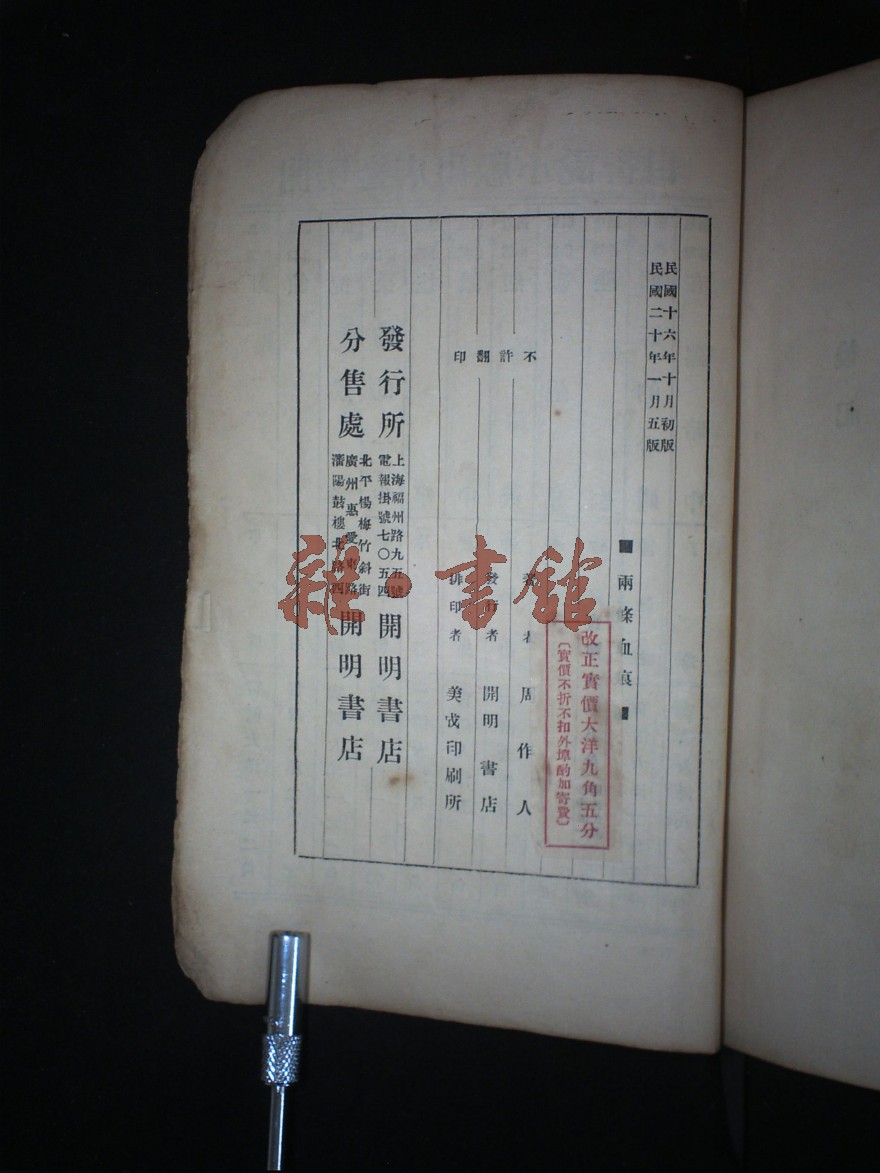 民國十六年十月初版
民國二十年一月五版
兩條血痕
改正實價大洋九角五分
〔實價不折不扣外埠酌加寄費〕
不許翻印
者 周作人
發行者 開明書店
排印者 美成印刷所
發行所 上海福州路九五號 電報掛號七〇五四 開明書店
分售處 北平楊梅竹斜街 廣州惠愛東路 瀋陽鼓樓北路西 開明書店
雜·書館